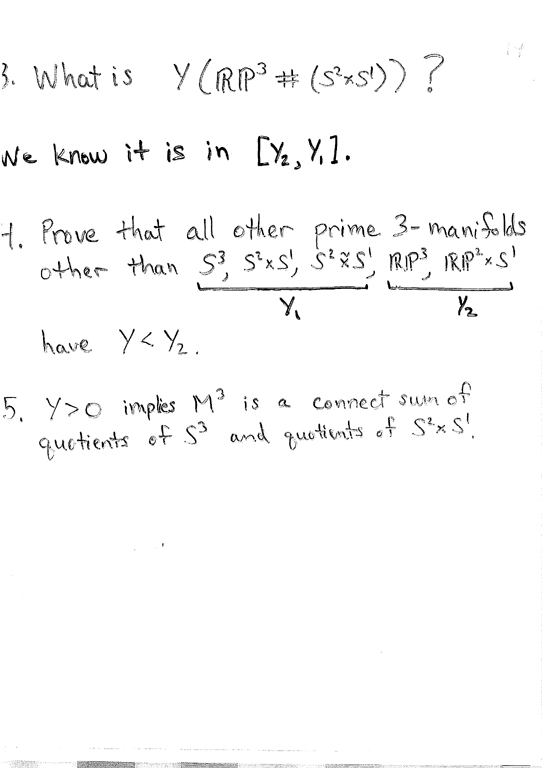 3. What is Y(RP³ # (S²×S¹))?
We know it is in [Y₂, Y₁].
4. Prove that all other prime 3-manifolds
other than S³, S²×S¹, S²×̃S¹, RP³, RP²×S¹
Y₁ Y₂
have Y < Y₂.
5. Y>0 implies M³ is a connect sum of
quotients of S³ and quotients of S²×S¹.